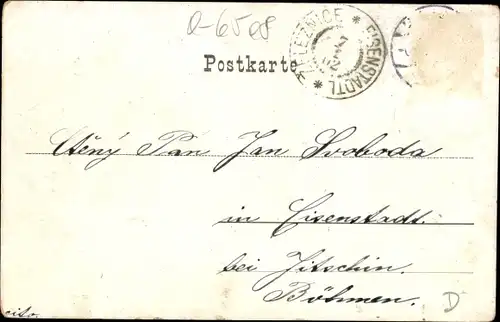 a-6508
ŽELEZNICE * EISENSTADTL *
Postkarte
Ctěný Pan Jan Svoboda
in Eisenstadtl.
bei Jitschin.
Böhmen.
D